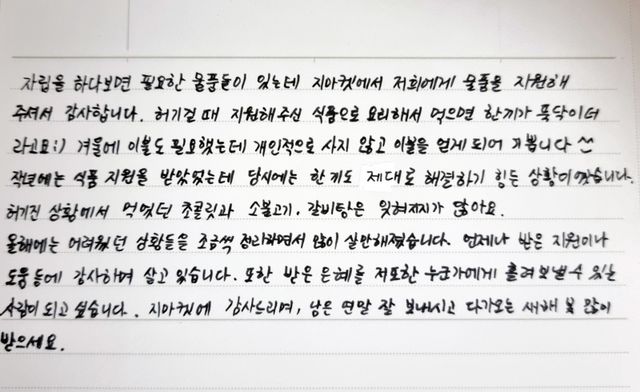 자립을 하다보면 필요한 물품들이 있는데 지마켓에서 저희에게 물품을 지원해
주셔서 감사합니다. 허기질 때 지원해주신 식품으로 요리해서 먹으면 한끼가 뚝딱이더
라고요:) 겨울에 이불도 필요했는데 개인적으로 사지 않고 이불을 얻게 되어 기쁩니다 ^^
작년에는 식품 지원을 받았었는데 당시에는 한끼도 제대로 해결하기 힘든 상황이었습니다.
허기진 상황에서 먹었던 초콜릿과 소불고기, 갈비탕은 잊혀지지가 않아요.
올해에는 어려웠던 상황들을 조금씩 정리하면서 많이 실안해졌습니다. 언제나 받은 지원이나
도움 등에 감사하며 살고 있습니다. 또한 받은 은혜를 저 또한 누군가에게 흘려보낼 수 있는
사람이 되고 싶습니다. 지마켓에 감사드리며, 남은 연말 잘 보내시고 다가오는 새해 복 많이
받으세요.